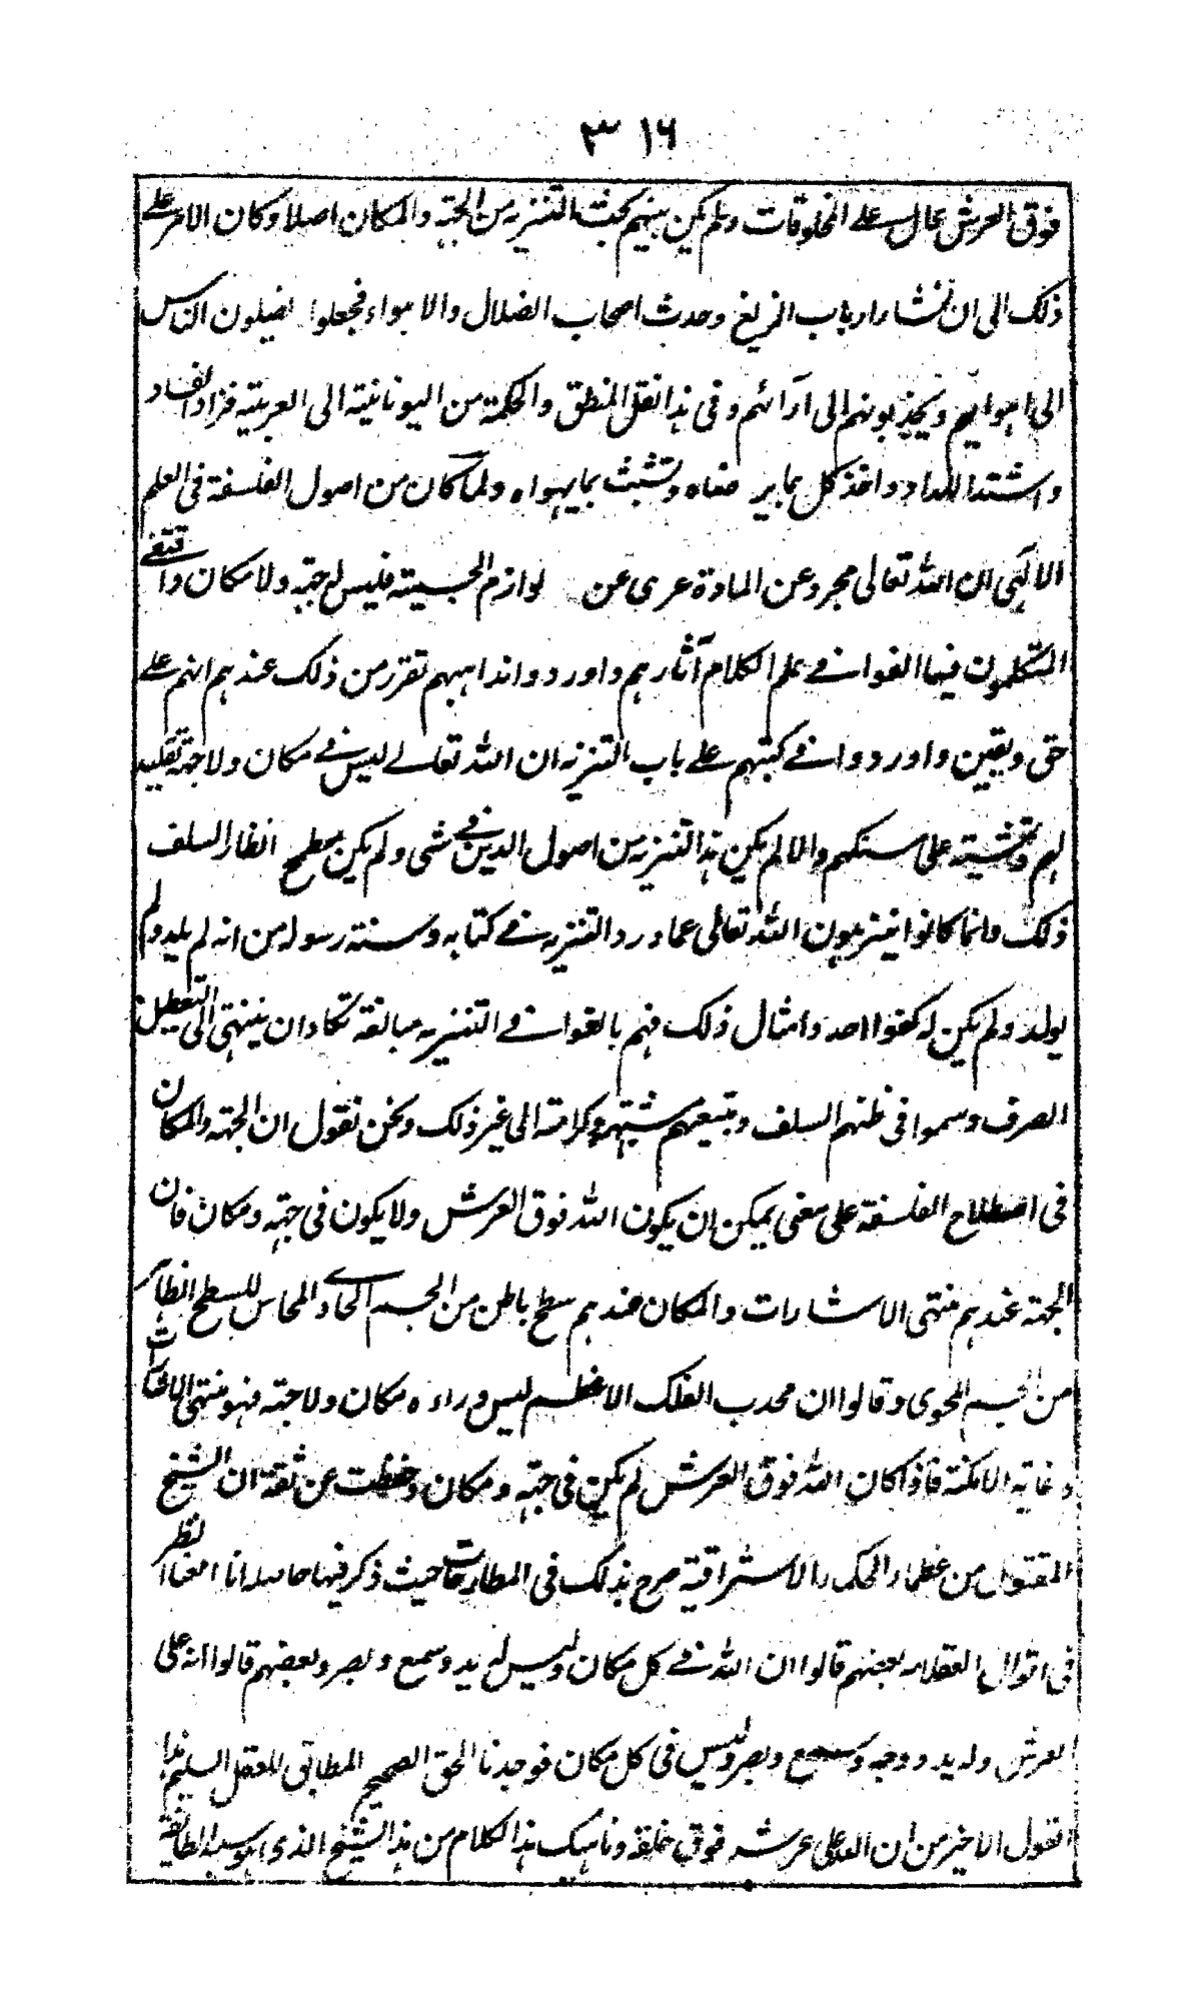 ٣١٦
فوق العرش عال على المخلوقات ولم يكن بينهم بحث التنزيه من الجهة والمكان اصلا وكان الامر على
ذلك الى ان نشا ارباب الزيغ وحدث اصحاب الضلال والاهواء فجعلوا يضلون الناس
الى اهوائهم ويجذبونهم الى آرائهم وفى هذا نقل المنطق والحكمة من اليونانية الى العربية فزاد الفساد
واشتد اللداد واخذ كل بما يرضاه وتشبث بما يهواه ولما كان من اصول الفلسفة فى العلم
الالهى ان الله تعالى مجرد عن المادة عرى عن لوازم الجسمية فليس له جهة ولا مكان واقتفى
المتكلمون فيما الفوا فى علم الكلام آثارهم واوردوا مذاهبهم تقرر من ذلك عندهم انهم على
حق ويقين واوردوا فى كتبهم على باب التنزيه ان الله تعالى ليس فى مكان ولا جهة تقليدا
لهم وتمشية على مسلكهم والا لم يكن هذا التنزيه من اصول الدين فى شى ولم يكن مطمح انظار السلف
ذلك وانما كانوا ينزهون الله تعالى عما ورد التنزيه فى كتابه وسنة رسوله من انه لم يلد ولم
يولد ولم يكن له كفوا احد وامثال ذلك فهم بالغوا فى التنزيه مبالغة تكاد ان ينتهى الى التعطيل
الصرف وسموا فى ظنهم السلف ومتبعيهم مشبهة وكرامية الى غير ذلك ونحن نقول ان الجهة والمكان
فى اصطلاح الفلسفة على معنى يمكن ان يكون الله فوق العرش ولا يكون فى جهة ومكان فان
الجهة عندهم منتهى الاشارات والمكان عندهم سطح باطن من الجسم الحاوى المماس للسطح الظاهر
من الجسم المحوى وقالوا ان محدب الفلك الاعظم ليس وراءه مكان ولا جهة فهو منتهى الاشارات
وغاية الامكنة فاذا كان الله فوق العرش لم يكن فى جهة ومكان وحفظت عن ثقة ان الشيخ
المقتول من عظماء الحكماء الاشراقية صرح بذلك فى المطارحات حيث ذكر فيها حاصله انا امعنا النظر
فى اقوال العقلاء بعضهم قالوا ان الله فى كل مكان وليس له يد وسمع وبصر وبعضهم قالوا انه على
العرش وله يد ووجه وسمع وبصر وليس فى كل مكان فوجدنا الحق الصحيح المطابق للعقل السليم هذا
القول الاخير من ان الله على عرشه فوق خلقه وناهيك هذا الكلام من هذا الشيخ الذى هو سيد الطائفة